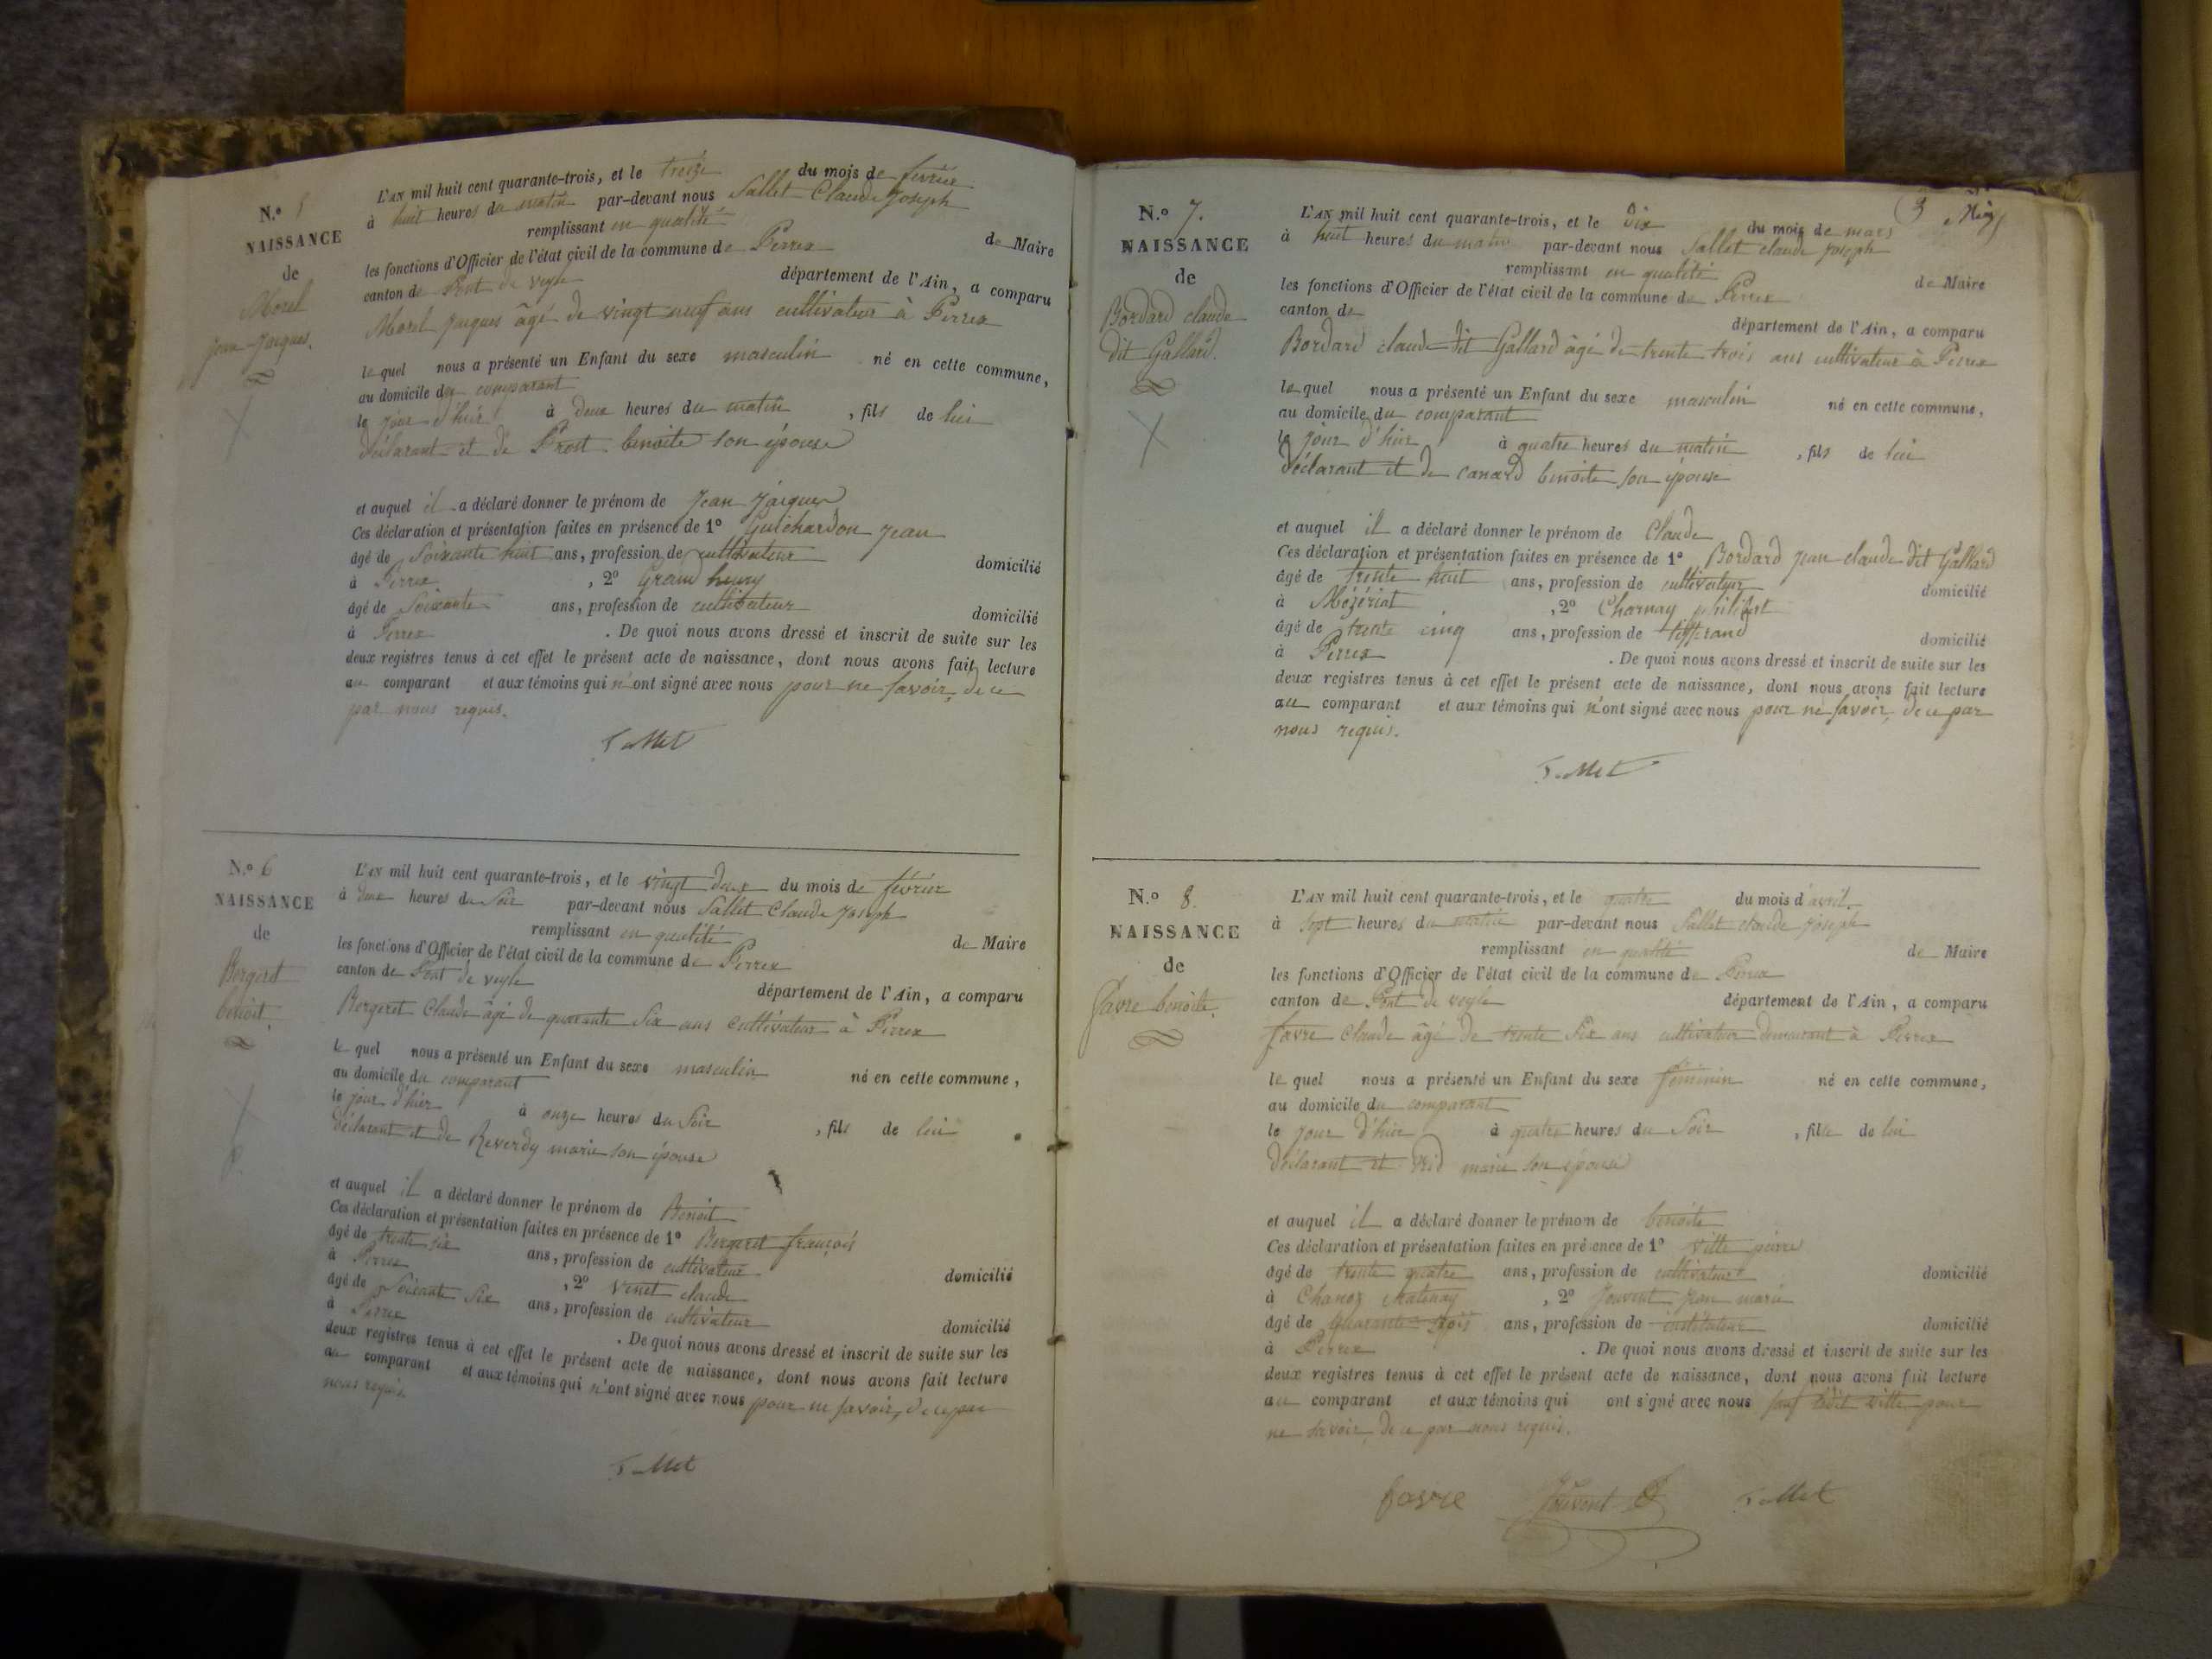 N.º 5
NAISSANCE
de
Morel
Jean-Jacques.
L'AN mil huit cent quarante-trois, et le treize du mois de février
à huit heures du matin par-devant nous Sallet Claude Joseph
remplissant en qualité de Maire
les fonctions d'Officier de l'état civil de la commune de Perrex
canton de Pont de veyle département de l'Ain, a comparu
Morel Jacques âgé de vingt neuf ans cultivateur à Perrex
lequel nous a présenté un Enfant du sexe masculin né en cette commune,
au domicile du comparant
le jour d'hier à deux heures du matin, fils de lui
déclarant et de Prost benoite son épouse
et auquel il a déclaré donner le prénom de Jean Jacques
Ces déclaration et présentation faites en présence de 1º Guichardon Jean
âgé de Soixante huit ans, profession de cultivateur domicilié
à Perrex, 2º Grand henry
âgé de Soixante ans, profession de cultivateur domicilié
à Perrex. De quoi nous avons dressé et inscrit de suite sur les
deux registres tenus à cet effet le présent acte de naissance, dont nous avons fait lecture
au comparant et aux témoins qui n'ont signé avec nous pour ne savoir, de ce
par nous requis.
Sallet
N.º 6
NAISSANCE
de
Bergeret
benoit.
L'AN mil huit cent quarante-trois, et le vingt deux du mois de février
à deux heures du Soir par-devant nous Sallet Claude Joseph
remplissant en qualité de Maire
les fonctions d'Officier de l'état civil de la commune de Perrex
canton de Pont de veyle département de l'Ain, a comparu
Bergeret Claude âgé de quarante Six ans cultivateur à Perrex
lequel nous a présenté un Enfant du sexe masculin né en cette commune,
au domicile du comparant
le jour d'hier à onze heures du Soir, fils de lui
déclarant et de Reverdy marie son épouse
et auquel il a déclaré donner le prénom de Benoit
Ces déclaration et présentation faites en présence de 1º Bergeret françois
âgé de trente six ans, profession de cultivateur domicilié
à Perrex, 2º Venet claude
âgé de Soixante Six ans, profession de cultivateur domicilié
à Perrex. De quoi nous avons dressé et inscrit de suite sur les
deux registres tenus à cet effet le présent acte de naissance, dont nous avons fait lecture
au comparant et aux témoins qui n'ont signé avec nous pour ne savoir, de ce par
nous requis.
Sallet
3
N.º 7.
NAISSANCE
de
Bordard claude
dit Gallard.
L'AN mil huit cent quarante-trois, et le dix du mois de mars
à huit heures du matin par-devant nous Sallet claude Joseph
remplissant en qualité de Maire
les fonctions d'Officier de l'état civil de la commune de Perrex
canton de département de l'Ain, a comparu
Bordard claude dit Gallard âgé de trente trois ans cultivateur à Perrex
lequel nous a présenté un Enfant du sexe masculin né en cette commune,
au domicile du comparant
le jour d'hier à quatre heures du matin, fils de lui
déclarant et de canard benoite son épouse
et auquel il a déclaré donner le prénom de Claude
Ces déclaration et présentation faites en présence de 1º Bordard Jean claude dit Gallard
âgé de trente huit ans, profession de cultivateur domicilié
à Mézériat, 2º Charnay philibert
âgé de trente cinq ans, profession de tisserand domicilié
à Perrex. De quoi nous avons dressé et inscrit de suite sur les
deux registres tenus à cet effet le présent acte de naissance, dont nous avons fait lecture
au comparant et aux témoins qui n'ont signé avec nous pour ne savoir, de ce par
nous requis.
Sallet
N.º 8.
NAISSANCE
de
favre benoite.
L'AN mil huit cent quarante-trois, et le quatre du mois d'avril
à Sept heures du matin par-devant nous Sallet claude Joseph
remplissant en qualité de Maire
les fonctions d'Officier de l'état civil de la commune de Perrex
canton de Pont de veyle département de l'Ain, a comparu
favre Claude âgé de trente Six ans cultivateur demeurant à Perrex
lequel nous a présenté un Enfant du sexe féminin né en cette commune,
au domicile du comparant
le jour d'hier à quatre heures du Soir, fille de lui
déclarant et marie son épouse
et auquel il a déclaré donner le prénom de benoite
Ces déclaration et présentation faites en présence de 1º Vitte pierre
âgé de trente quatre ans, profession de cultivateur domicilié
à Chanoz Chatenay, 2º Jouvent Jean marie
âgé de quarante trois ans, profession de instituteur domicilié
à Perrex. De quoi nous avons dressé et inscrit de suite sur les
deux registres tenus à cet effet le présent acte de naissance, dont nous avons fait lecture
au comparant et aux témoins qui ont signé avec nous sauf ledit Vitte pour
ne savoir, de ce par nous requis.
favre Jouvent Sallet